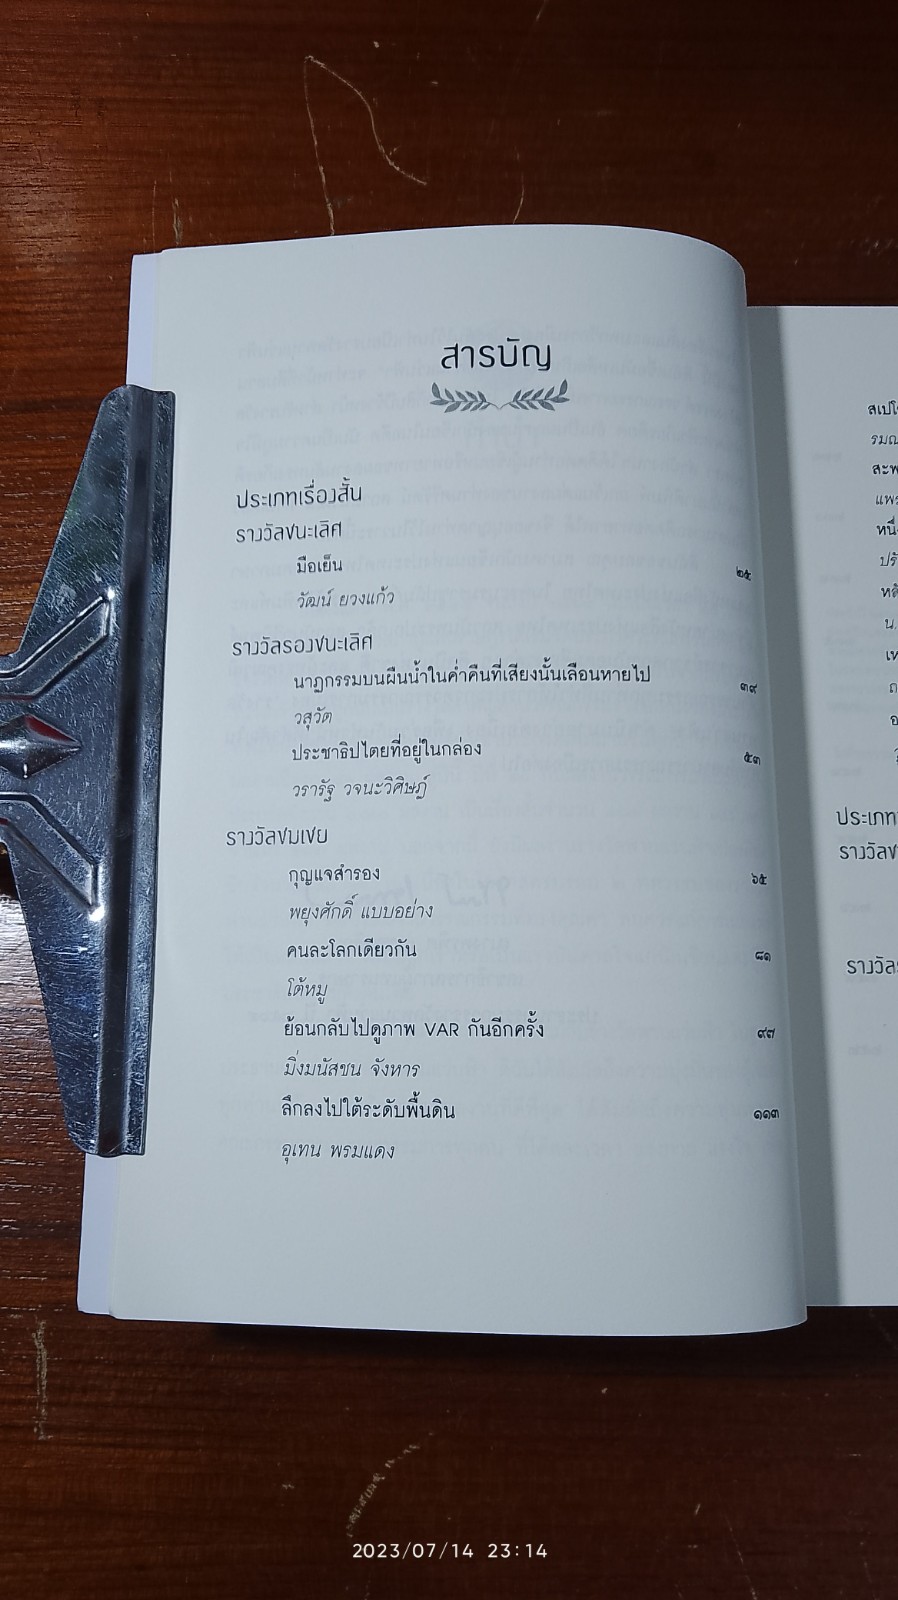 สารบัญ
ประเภทเรื่องสั้น
รางวัลชนะเลิศ
มือเย็น ๒๕
วัฒน์ ยวงแก้ว
รางวัลรองชนะเลิศ
นาฏกรรมบนผืนน้ำในค่ำคืนที่เสียงนั้นเลือนหายไป ๓๙
วสุวัต
ประชาธิปไตยที่อยู่ในกล่อง ๕๓
วรารัฐ วจนะวิศิษฎ์
รางวัลชมเชย
กุญแจสำรอง ๖๕
พยุงศักดิ์ แบบอย่าง
คนละโลกเดียวกัน ๘๑
โต้หมู
ย้อนกลับไปดูภาพ VAR กันอีกครั้ง ๙๗
มิ่งมนัสชน จังหาร
ลึกลงไปใต้ระดับพื้นดิน ๑๑๓
อุเทน พรมแดง
ประเภท
2023/07/14 23:14